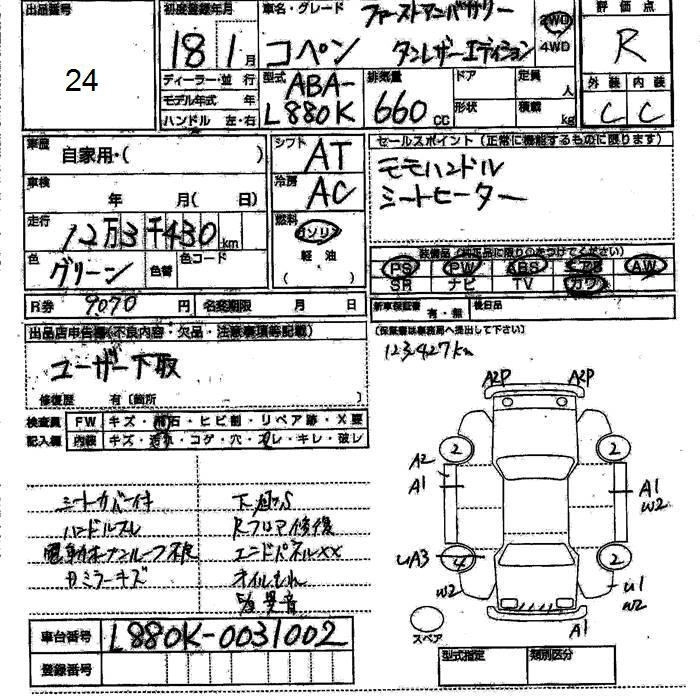 出品番号
24
初度登録年月
18 1月
ディーラー・並 行
モデル年式 年
ハンドル 左・右
車名・グレード
ファーストアニバーサリー
コペン タンレザーエディション
2WD
4WD
型式 ABA-
L880K
排気量
660cc
ドア
形状
定員 人
積載 kg
評価点
R
外装 内装
C C
車歴
自家用・( )
車検
年 月( 日)
走行
12万3千430km
色
グリーン
色替
色コード
シフト AT
冷房 AC
燃料
ガソリン
軽油
( )
セールスポイント (正常に機能するものに限ります)
モモハンドル
シートヒーター
装備品 (純正品に限り○をつけてください)
PS PW ABS エアB AW
SR ナビ TV カワ
R券 9070円 名変期限 月 日
新車保証書 有・無 後日品
(保証書は事務局へ提出して下さい)
123427km
出品店申告欄(不良内容・欠品・注意事項等記載)
ユーザー下取
修復歴 有〔箇所 〕
検査員
記入欄
FW キズ・飛石・ヒビ割・リペア跡・X要
内装 キズ・汚れ・コゲ・穴・スレ・キレ・破レ
シートカバー付
ハンドルスレ
電動オープンルーフ不良
カミラーキズ
下廻りS
Rフロア修復
エンドパネルXX
オイルもれ
異音
A2P A2P
2 2
A2
A1
A1
W2
UA3
4 2
W2
U1
W2
A1
スペア
車台番号 L880K-0031002
登録番号
型式指定 類別区分